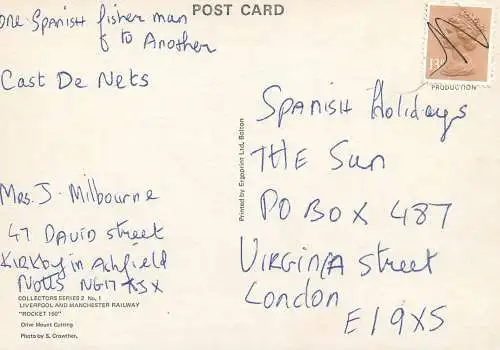 POST CARD
one Spanish fisher man
& to Another
Cast De Nets
Mrs. J. Milbourne
47 David street
Kirkby in Ashfield
Notts NG17
COLLECTORS SERIES 2 No. 1
LIVERPOOL AND MANCHESTER RAILWAY
"ROCKET 150"
Olive Mount Cutting
Photo by S. Crowther.
Printed by Ergoprint Ltd, Bolton
13
PRODUCTION
Spanish Holidays
THE Sun
PO BOX 487
VIRGINIA street
London
E1 9XS